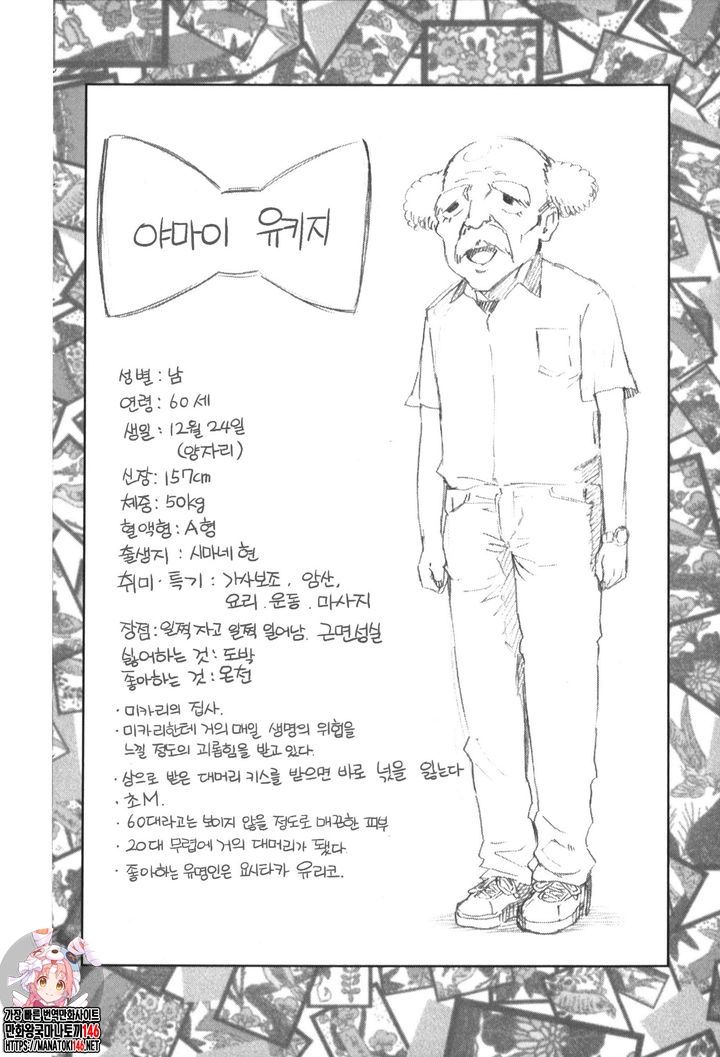 야마이 유키지
성별 : 남
연령 : 60세
생일 : 12월 24일
(양자리)
신장 : 157cm
체중 : 50kg
혈액형 : A형
출생지 : 시마네 현
취미·특기 : 가사보조. 암산,
요리. 운동. 마사지
장점 : 일찍 자고 일찍 일어남. 근면성실
싫어하는 것 : 도박
좋아하는 것 : 온천
· 미카리의 집사.
· 미카리한테 거의 매일 생명의 위협을
느낄 정도의 괴롭힘을 받고 있다.
· 상으로 받은 대머리 키스를 받으면 바로 넋을 잃는다
· 초M.
· 60대라고는 보이지 않을 정도로 매끈한 피부
· 20대 무렵에 거의 대머리가 됐다.
· 좋아하는 유명인은 요시타카 유리코.
가장 빠른 번역만화사이트
만화왕국마나토끼146
HTTPS://MANATOKI146.NET